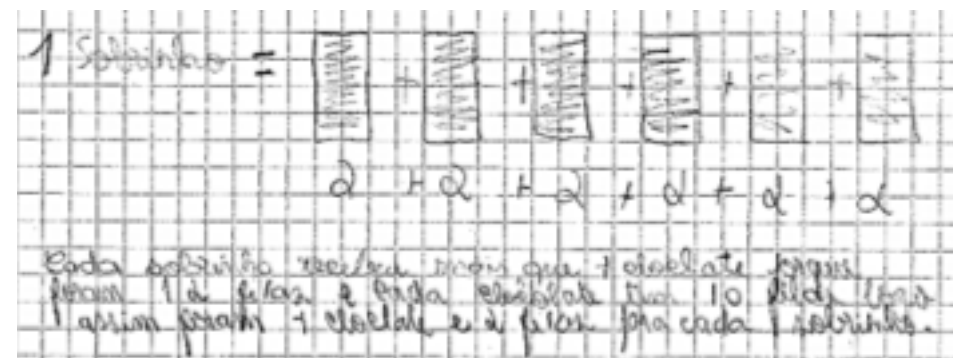 1 Sobrinho =
+ + + + +
2 + 2 + 2 + 2 + 2 + 2
Cada sobrinho recebeu mais que 1 chocolate porque
foram 12 e cada chocolate 10
assim foram 1 e 2 pra cada 1 sobrinho.